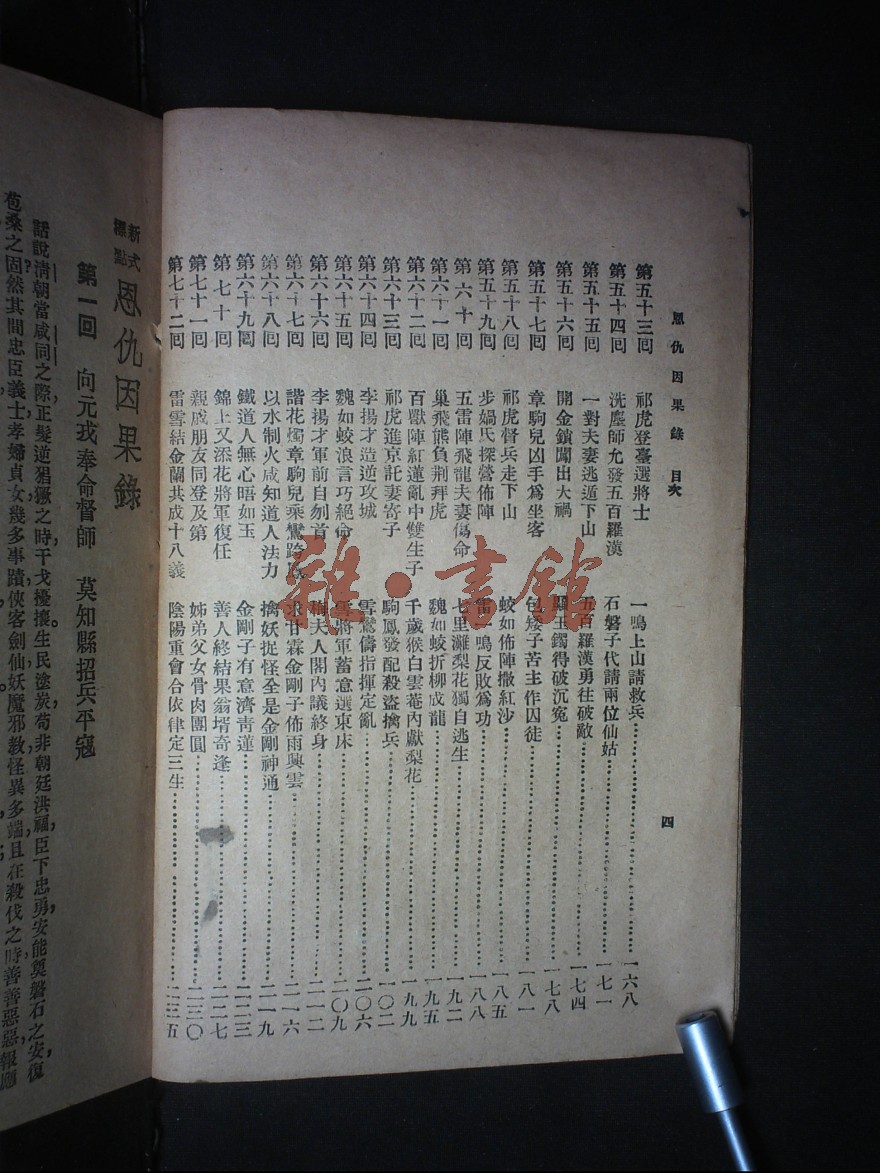 恩仇因果錄 目次
四
第五十三回 祁虎登臺選將士 一鳴上山請救兵 一六八
第五十四回 洗塵師允發五百羅漢 石磐子代請兩位仙姑 一七一
第五十五回 一對夫妻逃遁下山 五百羅漢勇往破敵 一七四
第五十六回 開金鎖闖出大禍 顯玉鐲得破沉冤 一七八
第五十七回 章駒兒凶手爲坐客 包矮子苦主作囚徒 一八一
第五十八回 祁虎督兵走下山 蛟如佈陣撒紅沙 一八五
第五十九回 步媧氏探營佈陣 雷一鳴反敗爲功 一八八
第六十回 五雷陣飛龍夫妻傷命 七里灘梨花獨自逃生 一九二
第六十一回 巢飛熊負荆拜虎 魏如蛟折柳成龍 一九五
第六十二回 百獸陣紅蓮亂中雙生子 千歲猴白雲菴內獻梨花 一九九
第六十三回 祁虎進京託妻寄子 駒鳳發配殺盜擒兵 一〇二
第六十四回 李揚才造逆攻城 雪鸞儔指揮定亂 二〇六
第六十五回 魏如蛟浪言巧絕命 雪將軍蓄意選東床 二〇九
第六十六回 李揚才軍前自刎首 梅夫人閣內議終身 二一二
第六十七回 諧花燭章駒兒乘鸞跨鳳 求甘霖金剛子佈雨興雲 二一六
第六十八回 以水制火咸知道人法力 擒妖捉怪全是金剛神通 二一九
第六十九回 鐵道人無心晤如玉 金剛子有意濟靑蓮 二二三
第七十回 錦上又添花將軍復任 善人終結果翁壻奇逢 二二七
第七十一回 親戚朋友同登及第 姊弟父女骨肉團圓 二三〇
第七十二回 雷雪結金蘭共成十八義 陰陽重會合依律定三生 二三五
雜·書館
新式標點 恩仇因果錄
第一回 向元戎奉命督師 莫知縣招兵平寇
話說淸朝當咸同之際正髮逆猖獗之時干戈擾攘生民塗炭苟非朝廷洪福臣下忠勇安能奠磐石之安復
苞桑之固然其間忠臣義士孝婦貞女幾多事蹟俠客劍仙妖魔邪教怪異多端且在殺伐之時善善惡惡報應